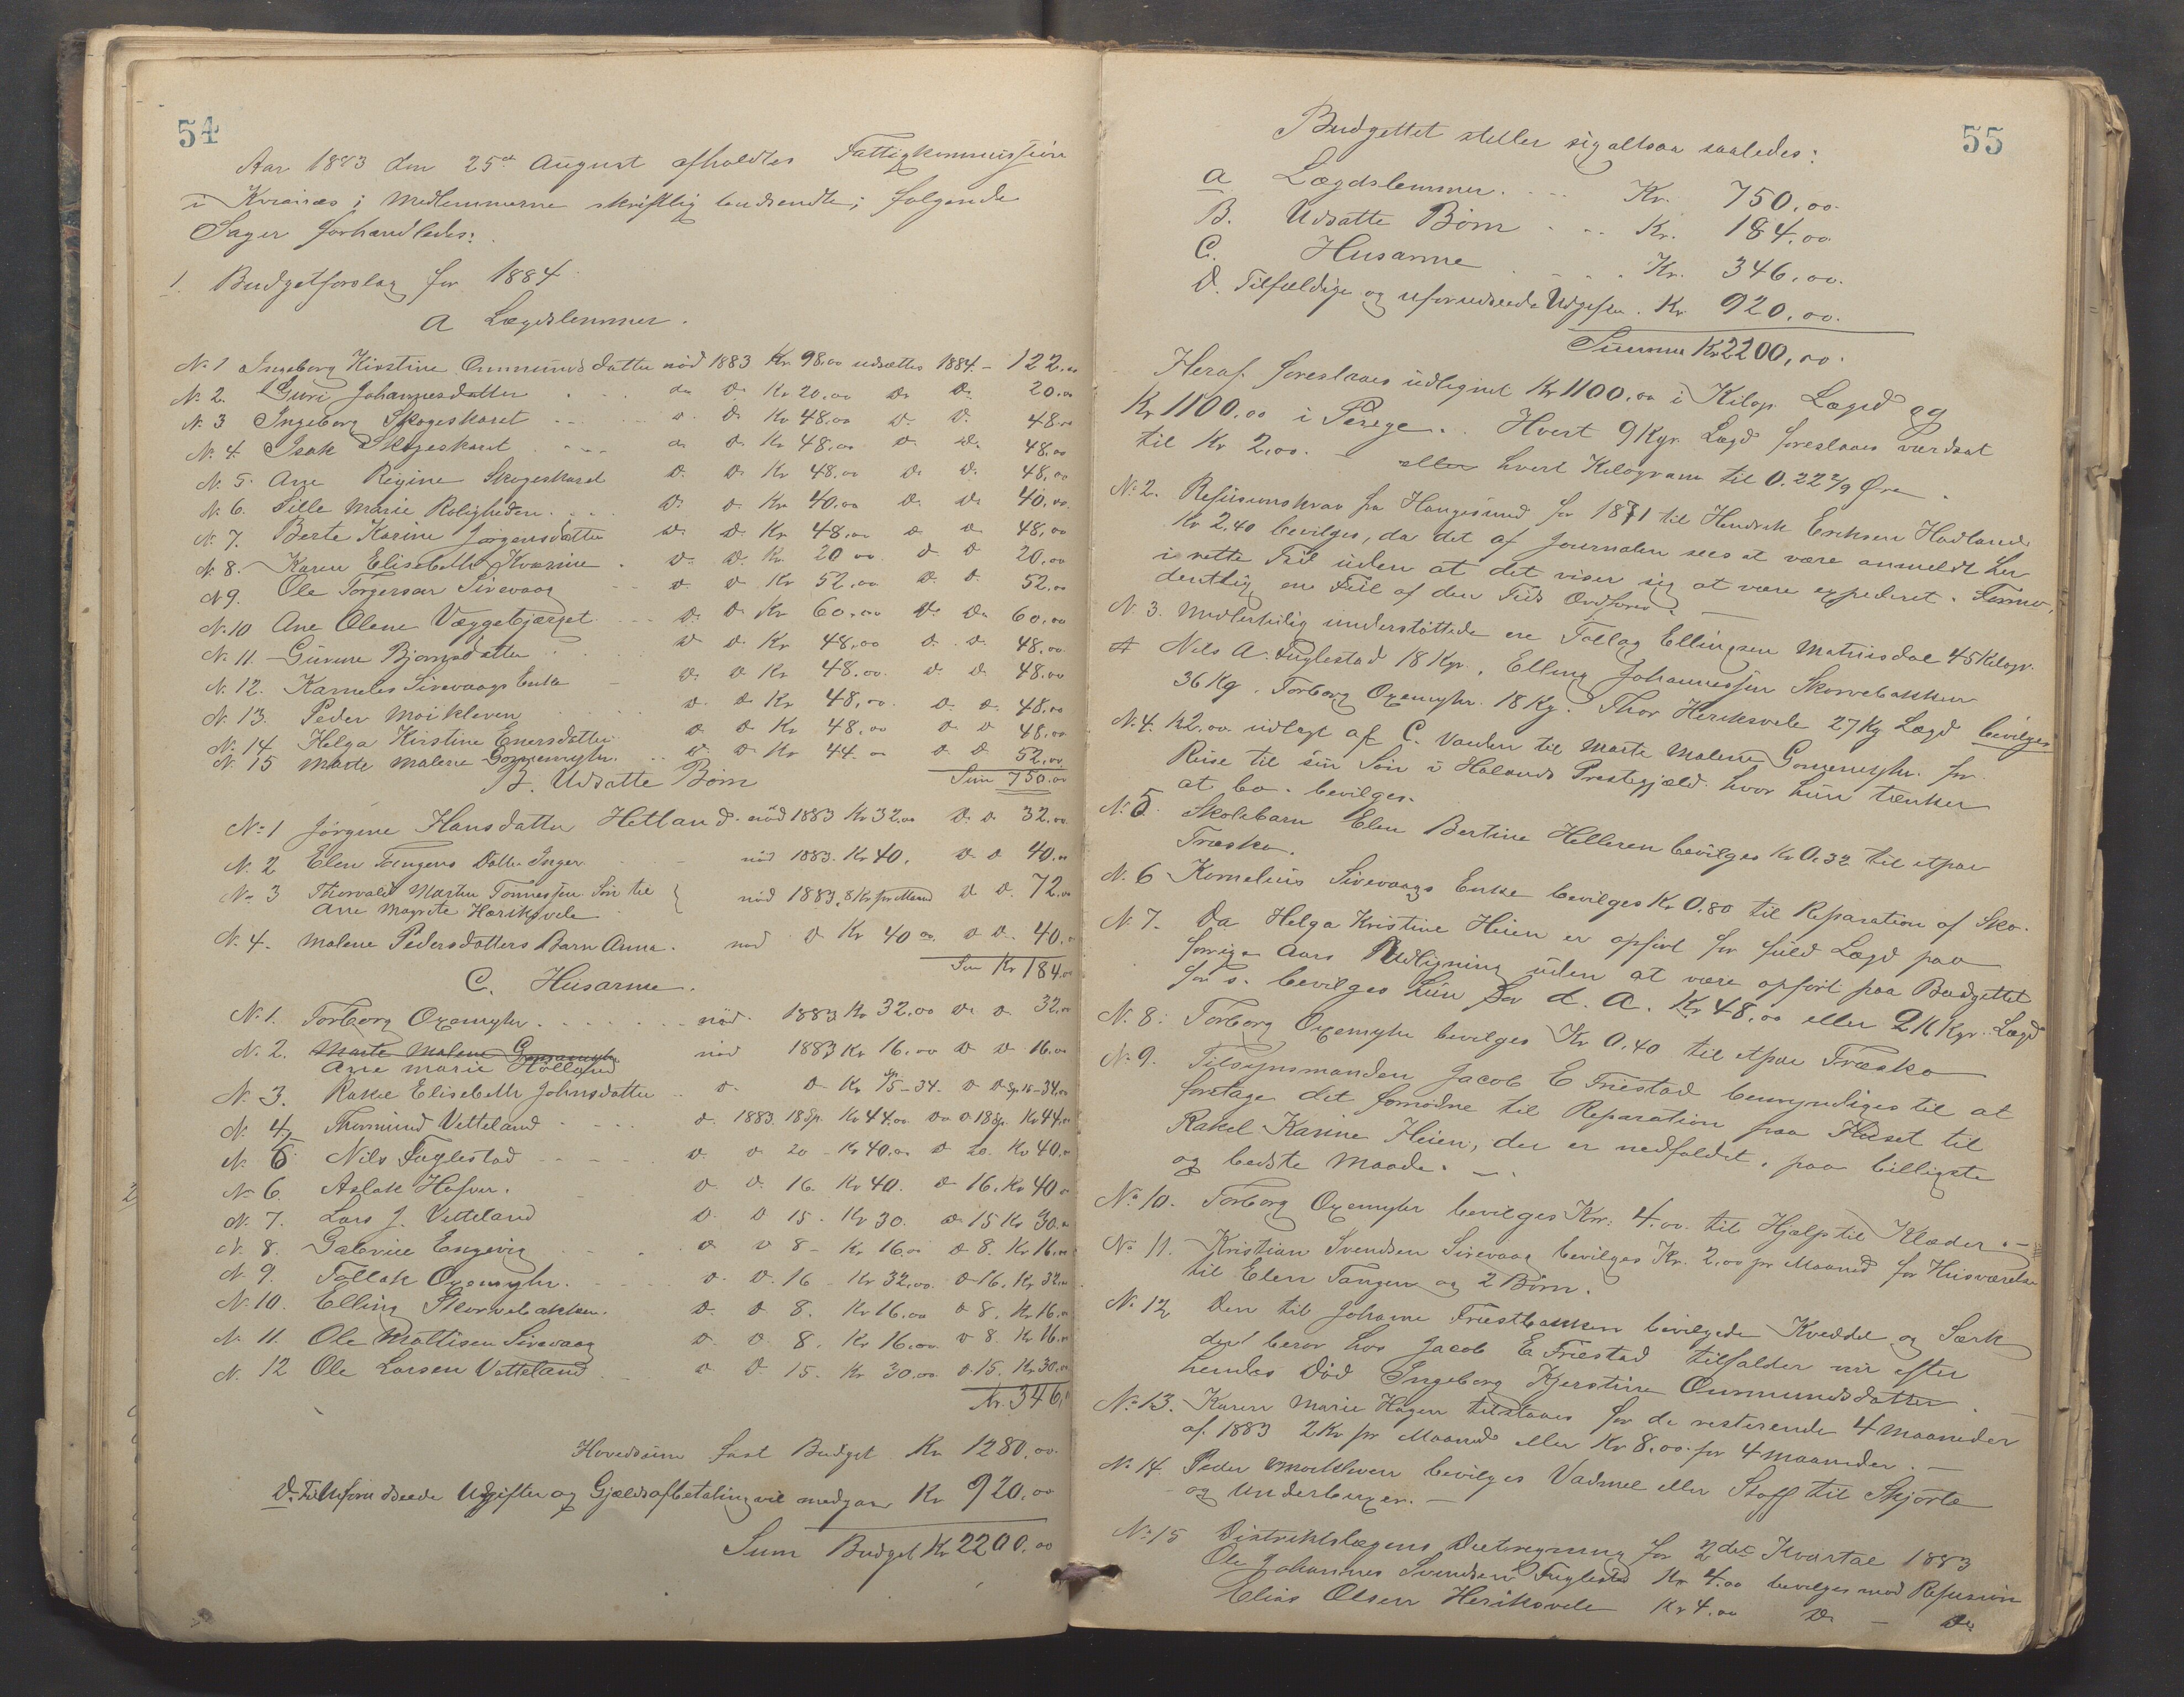 54
Aar 1883 den 25de August afholdtes Fattigkommission
i Kvianæs; Medlemmerne skriftlig; følgende
Sager forhandledes:
1. Budgetforslag for 1884
A Lægdslemmer.
No 1 Ingeborg Kirstine Ommunds datter nød 1883 Kr 98,00 udsættes 1884 - 122,00
No 2. Guri Johannesdatter . . do Do Kr 20,00 Do Do 20,00
No 3 Ingeborg Skogeskaret . . Do Do Kr 48,00 Do Do 48,00
No 4. Isak Skogeskaret . . Do Do Kr 48,00 Do Do 48,00
No 5. Ane Regine Skogeskaret Do Do Kr 48,00 Do Do 48,00
No 6. Sille Marie Roligheden . . Do Do Kr 40,00 Do Do 40,00
No 7. Berte Karine Jørgensdatter Do Do Kr 48,00 Do Do 48,00
No 8. Karen Elisabeth Kværnie . Do Do Kr 20,00 Do Do 20,00
No 9. Ole Torgersen Sirevaag Do Do Kr 52,00 Do Do 52,00
No 10 Ane Olene Væggebjærget . . Do Do Kr 60,00 Do Do 60,00
No 11. Gurine Bjørnsdatter . . Do Do Kr 48,00 Do Do 48,00
No 12. Kornelius Sirevaags Enke - Do Do Kr 48,00 Do Do 48,00
No 13. Peder Moikleven . . Do Do Kr 48,00 Do Do 48,00
No 14 Helga Kirstine Enersdatter Do Do Kr 48,00 Do Do 48,00
No 15 Marte Malene Gommemyhr. . . Do Do Kr 44,00 Do Do 52,00
B. Udsatte Børn Sum 750,00
No 1 Jørgine Hansdatter Hetland. nød 1883 Kr 32,00 Do Do 32,00
No 2 Elen Tangens Datter Inger - nød 1883. Kr 40, Do Do 40,00
No 3 Thorvald Martin Tønnessen Søn til
Ane Magrete Hæriksvele } nød 1883, 8 Kr pr Maand Do Do 72,00
No 4. Malene Pedersdatters Barn Anna. nød Do Kr 40,00 Do Do 40,00
Sum Kr 184,00
C. Husarme.
No 1. Torborg Oxemyhr . . . . nød. 1883 Kr 32,00 Do Do 32,00
No 2. Marte Malene Gommemyhr nød 1883 Kr 16,00 Do Do 16,00
Ane Marie Holland
No 3. Rakel Elisabeth Johnsdatter . . Do Do Kr Sp 15-34. Do Do Sp 15-34,00
No 4, Thormund Vetteland . . Do 1883. 18 Sp. Kr 44,00 Do Do 18 Sp. Kr 44,00
No 5 Nils Fuglestad . . Do Do 20 - Kr 40,00 Do 20. Kr 40,00
No 6. Aslak Hafsøe. Do Do 16. Kr 40. Do 16. Kr 40,00
No 7. Lars J. Vetteland Do Do 15. Kr 30. Do 15 Kr 30,00
No 8. Gabriel Engevig . . Do Do 8 - Kr 16,00 Do 8. Kr 16,00
No 9. Tollak Oxemyhr. . . Do Do 16 - Kr 32,00. Do 16. Kr 32,00
No 10. Elling Skorvebakken. Do Do 8. Kr 16,00 Do 8. Kr 16,00
No 11. Ole Mattisen Sirevaag Do Do 8. Kr 16,00 Do 8. Kr 16,00
No 12 Ole Larsen Vetteland . . Do Do 15. Kr 30,00 Do 15. Kr 30,00
Kr. 346,00
Hovedsum fast Budget Kr 1280,00.
D. Til Uforudseede Udgifter og Gjældsafbetaling vil medgaa Kr 920,00
Sum Budget Kr 2200,00
55
Budgettet stiller sig altsaa saaledes:
A Lægdslemmer. . . Kr. 750,00
B. Udsatte Børn . . Kr. 184,00
C. Husarme . . . Kr. 346,00.
D. Tilfældige og uforudseede Udgifter. Kr 920,00.
Summa Kr 2200,00.
Heraf foreslaaes udlignet Kr 1100,00 i Kilogr. Lægd og
Kr 1100,00 i Penge. Hvert 9 Kgr. Lægd foreslaaes værdsat
til Kr 2,00. - eller hvert Kilogram til 0.22 2/9 Øre.
No 2. Refusionskrav fra Haugesund for 1871 til Hendrik Eriksen Hadland
Kr 2.40 bevilges, da det af Journalen sees at være anmeldt her
i rette Tid uden at det viser sig at være expederet. Formo,
dentlig en Feil af den Tids Ordfører. -
No 3. Midlertidig understøttede ere Tollag Ellingsen Matningsdal 45 Kilogr.
Nils A. Fuglestad 18 Kgr, Elling Johannessen Skorvebakken
36 Kg. Torborg Oxemyhr 18 Kg. Thor Heriksvele 27 Kg Lægd bevilges
No 4. Kr 2,00 udlagt af C. Vanden til Marte Malene Gommemyhr. for
Reise til sin Søn i Halands Prestegjæld. hvor hun tænker
at bo. bevilges.
No 5. Skolebarn Elen Bertine Helleren bevilges Kr 0.32 til et par
Træsko.
No 6 Kornelius Sirevaags Enke bevilges Kr 0.80 til Reparation af Sko.
No 7. Da Helga Kristine Heien er opført for fuld Lægd paa
forrige Aars Udligning uden at være opført paa Budgettet
for s. bevilges hun for d. A. Kr 48,00 eller 216 Kgr. Lægd
No 8: Torborg Oxemyhr bevilges Kr 0.40 til et par Træsko
No 9. Tilsynsmanden Jacob E Friestad bemyndiges til at
foretage det fornødne til Reparation paa Huset til
Rakel Karine Heien, der er nedfaldet, paa billigste
og bedste Maade. -
No 10. Torborg Oxemyhr bevilges Kr. 4,00 til Hjælp til Klæder. -
No 11. Kristian Svendsen Sirevaag bevilges Kr. 2,00 pr Maaned for Husværelse
til Elen Tangen og 2 Børn.
No 12 Den til Johanne Friestbakken bevilgede Kveddel og Særk
der beror hos Jacob E Friestad tilfalder nu efter
hendes Død Ingeborg Kjerstine Ommundsdatter. -
No 13. Karen Marie Hagen tilstaaes for de resterende 4 Maaneder
af 1883 2 Kr pr Maaned eller Kr 8,00 for 4 Maaneder. -
No 14. Peder Moikleven bevilges Vadmel eller Stoff til Skjorte
og Underbuxer. -
No 15 Distriktslægens Diætregning for 2det Kvartal 1883
Ole Johannes Svendsen Fuglestad Kr 4,00 bevilges mod Refusion
Elias Olsen Heriksvele Kr 4,00 Do - Do